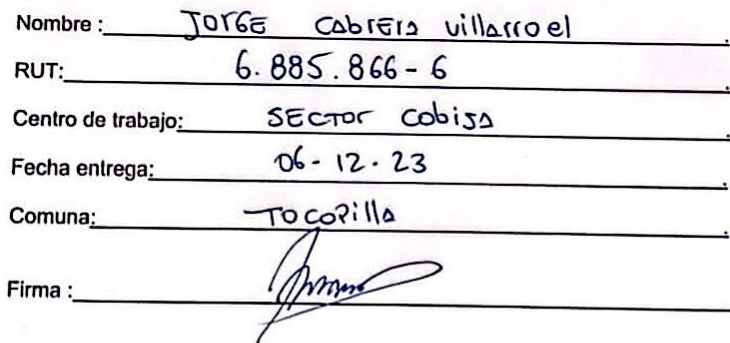 Nombre : Jorge Cabrera Villarroel.
RUT: 6.885.866-6.
Centro de trabajo: Sector Cobija.
Fecha entrega: 06-12-23.
Comuna: Tocopilla.
Firma :